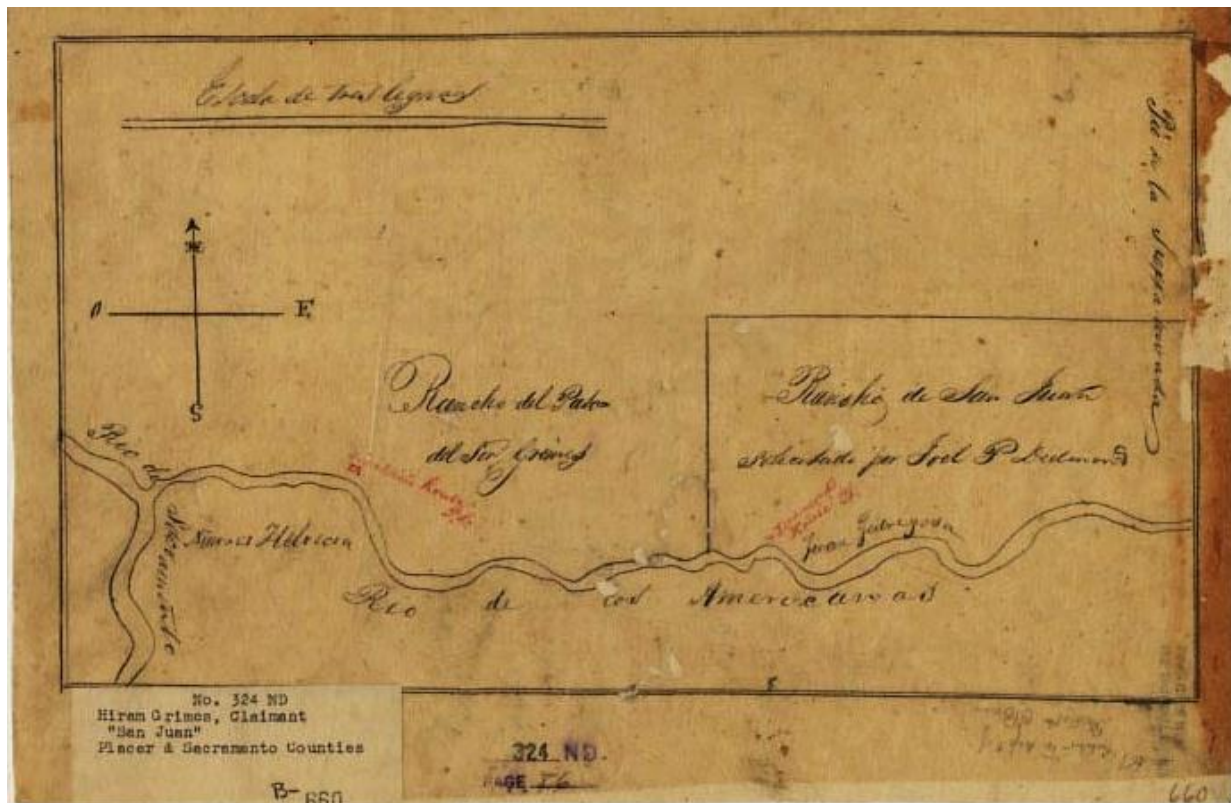 Escala de tres leguas
O
E
S
Rancho del Paso
del Sor Grimes
Rancho de San Juan
solicitado por Joel P Dedmond
Rio del
Sacramento
Nueva Helvecia
Rio de los Americanos
de la
No. 324 ND
Hiram Grimes, Claimant
"San Juan"
Placer & Sacramento Counties
B-660
324 ND.
PAGE 56
660